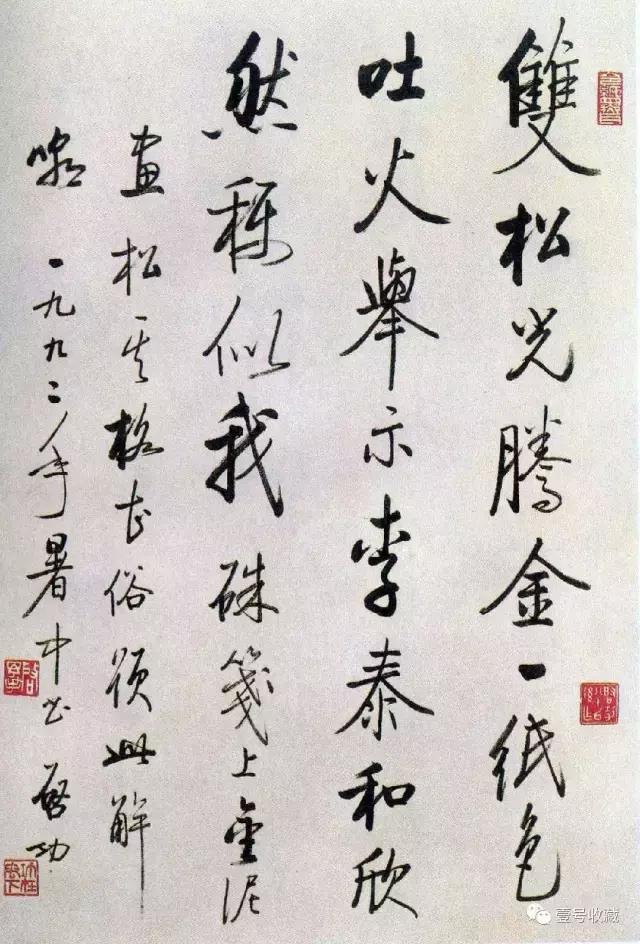 雙松光騰金一紙色
吐火舉示李泰和欣
然稱似我硃箋上金泥
畫松其格甚俗頌此解
嘲一九九二年暑中書啟功
壹号收藏